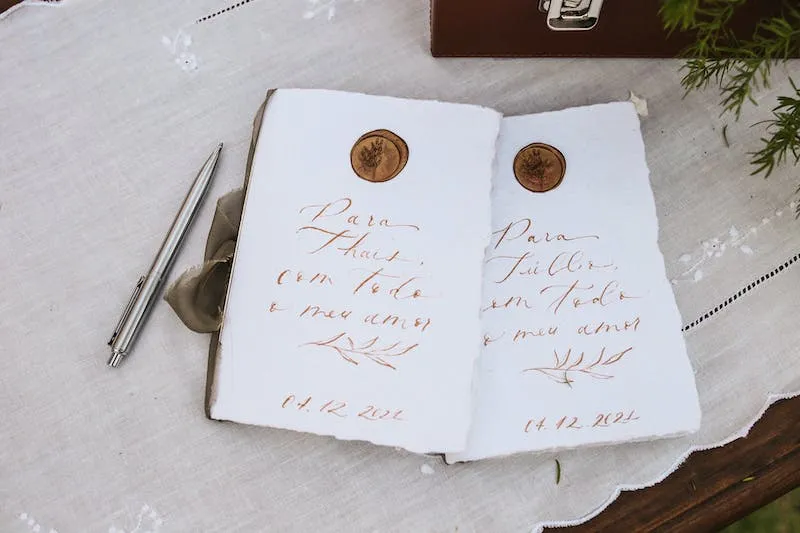 Para
Thais,
com todo
o meu amor
04.12.2021
Para
Túllio,
com todo
o meu amor
04.12.2021